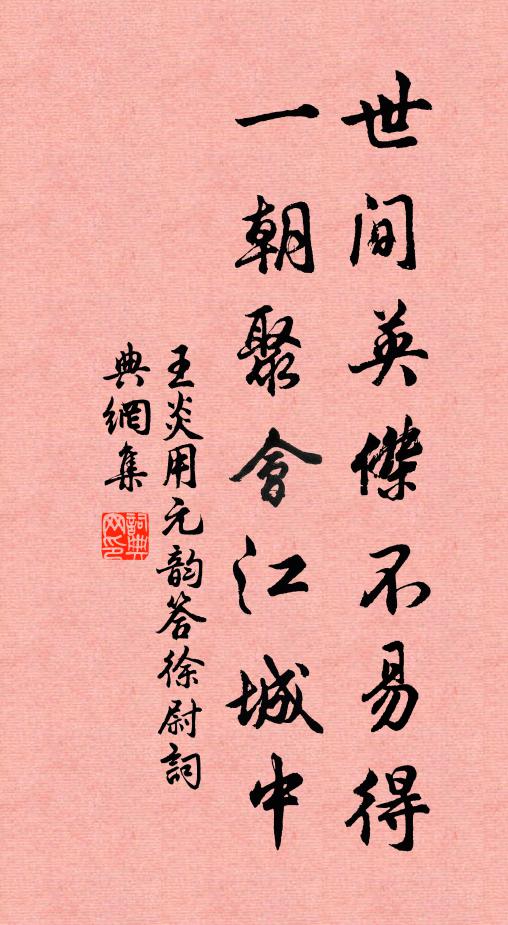 世间英傑不易得
一朝聚會江城中
王炎用元韵答徐尉詞
典網集
詞典网印